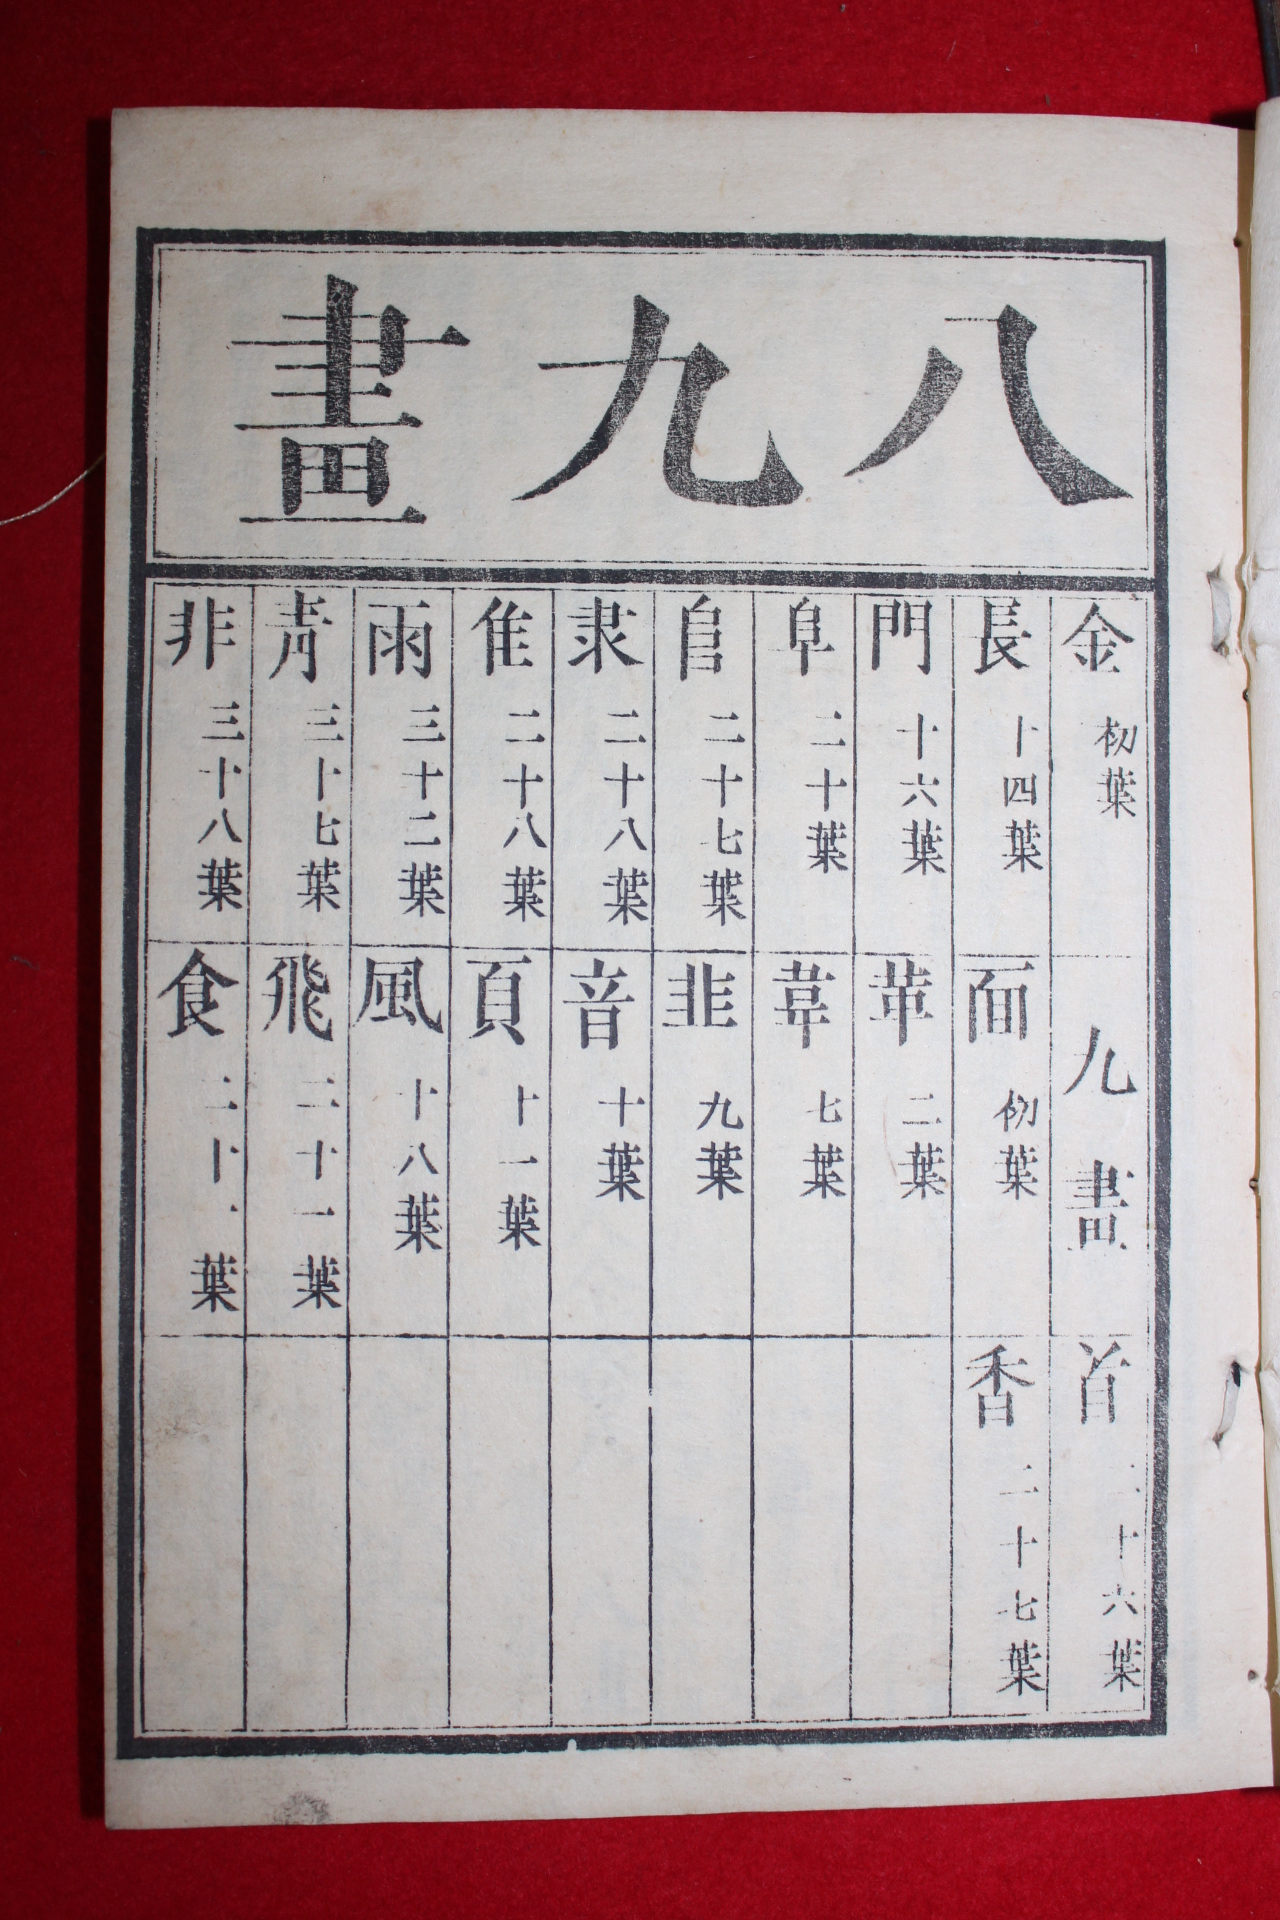 八九畫
金 初葉
長 十四葉
門 十六葉
阜 二十葉
二十七葉
隶 二十八葉
隹 二十八葉
雨 三十二葉
靑 三十七葉
非 三十八葉
九畫
面 初葉
革 二葉
韋 七葉
韭 九葉
音 十葉
頁 十一葉
風 十八葉
飛 二十一葉
食 二十一葉
首 二十六葉
香 二十七葉